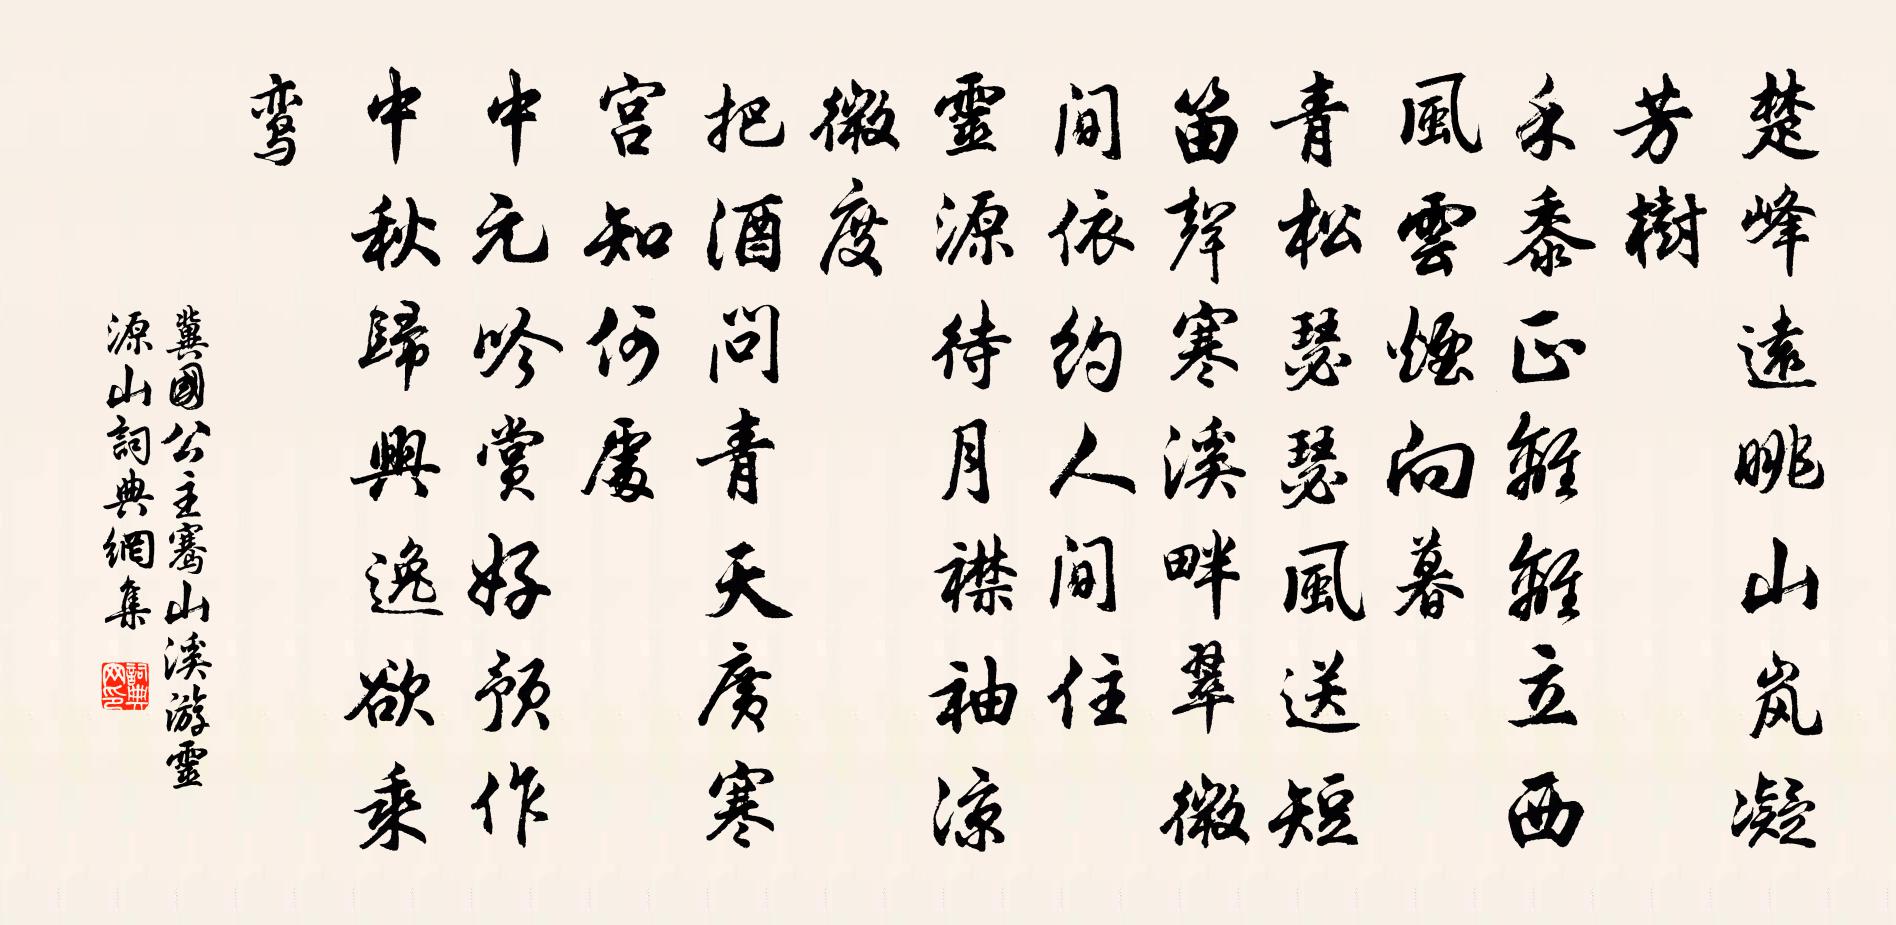 楚峰遠眺山岚凝
芳樹
禾黍正離離立西
風雲煙向暮
青松瑟瑟風送短
笛聲寒溪畔翠微
間依約人間住
靈源待月襟袖涼
微度
把酒問青天廣寒
宮知何處
中元吟賞好預作
中秋歸興逸欲乘
鸾
冀國公主騫山溪游靈
源山詞典網集
詞典網印